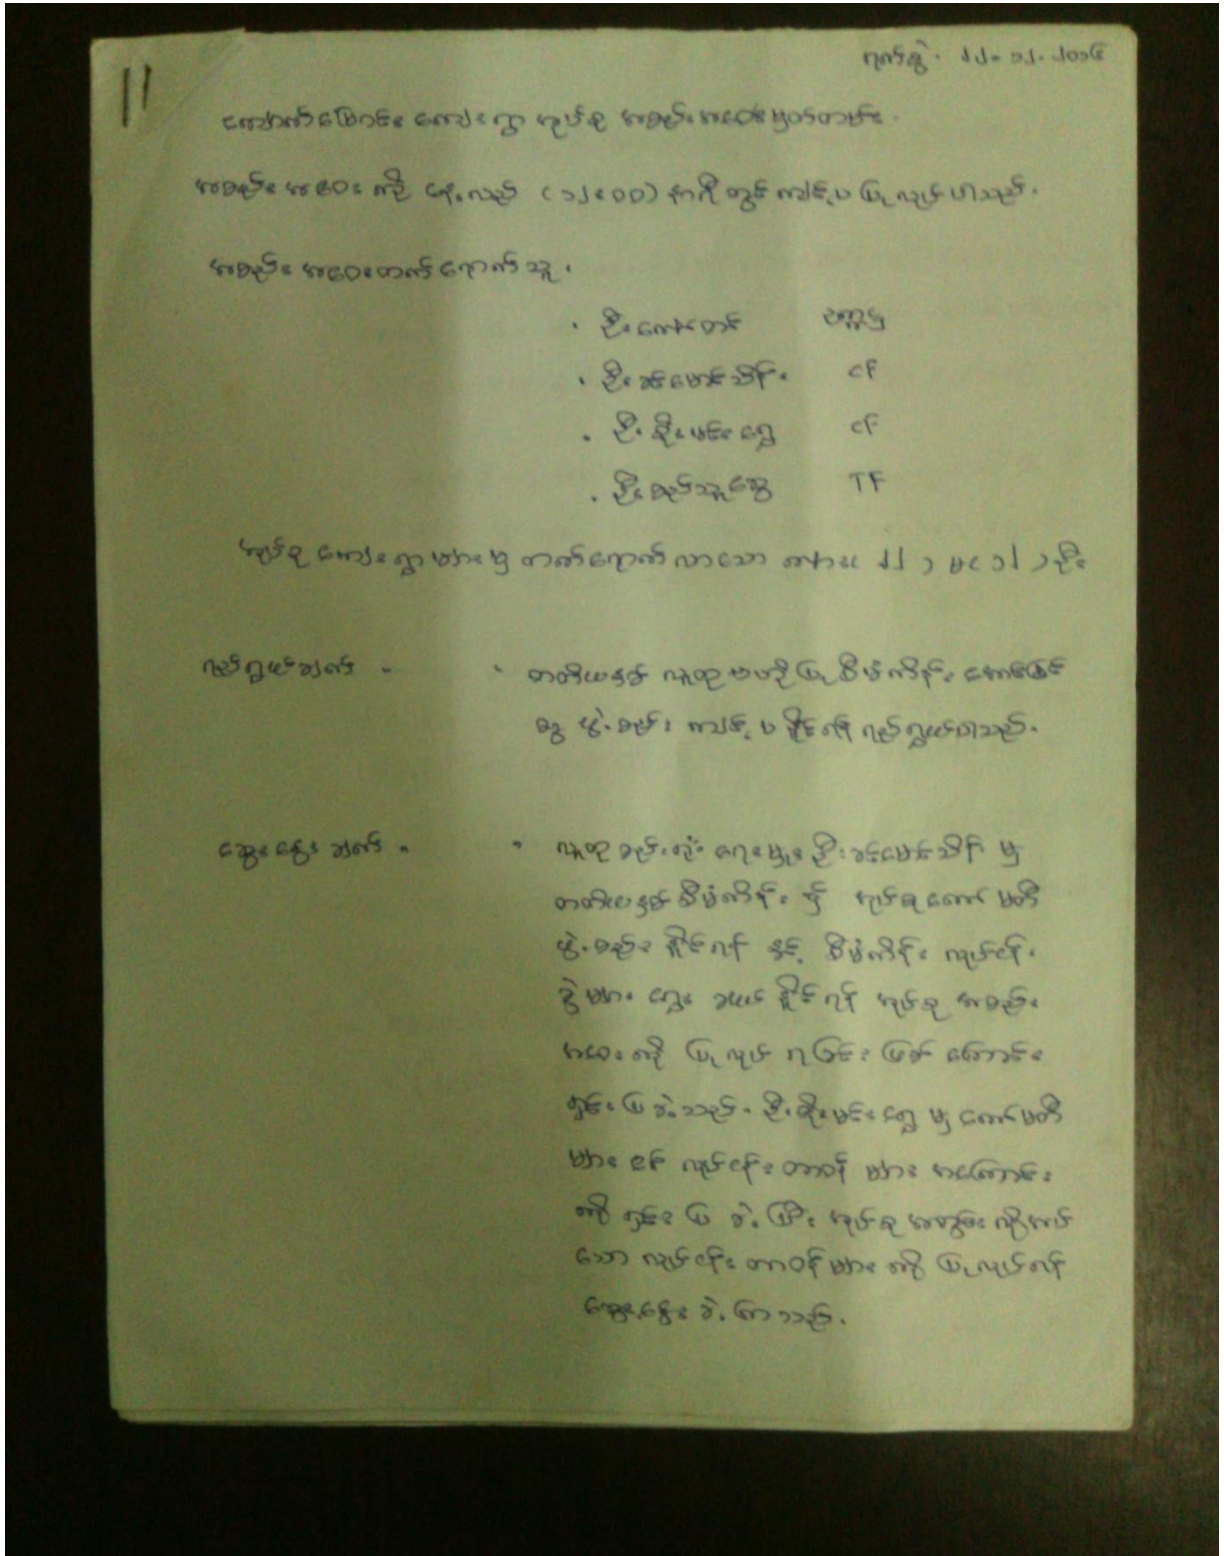 ရက်စွဲ . ၂၂-၁၂-၂၀၁၆
ကျောက်ပြောင်း ကျေးရွာ အုပ်စု အစည်းအဝေးမှတ်တမ်း .
အစည်းအဝေး ကို နေ့လည် (၁၂:၀၀) နာရီ တွင် ကျင့်ပ ပြုလုပ် ပါသည်.
အစည်းအဝေးတက်ရောက်သူ .
. ဦး ဥက္ကဋ္ဌ
. ဦးခင်မောင်သိန်း CF
. ဦးစိုးမင်းထွေ CF
. ဦးစည်သူဆွေ TF
အုပ်စု ကျေးရွာများမှ တက်ရောက် လာသော ကျား ၂၂ ၊ မ ၁၂ ၊ ဦး
ရည်ရွယ်ချက် - . တတိယနှစ် လူထု ဗဟိုပြု စီမံကိန်း အကောင်အထည်
ဖွဲ့စည်း ကျင့်ပ နိုင်ရန် ရည်ရွယ်ပါသည်.
ဆွေးနွေးချက် - . လူထု စည်းရုံးရေးမှူး ဦးခင်မောင်သိန်း မှ
တတိယနှစ် စီမံကိန်း ၌ အုပ်စု ကော်မတီ
ဖွဲ့စည်း နိုင်ရန် နှင့် စီမံကိန်း လုပ်ငန်း
ခွဲများ ရွေးချယ် နိုင်ရန် အုပ်စု အစည်း
အဝေး ကို ပြုလုပ် ရခြင်း ဖြစ်ကြောင်း
ရှင်းပြ ခဲ့သည်. ဦးစိုးမင်းထွေ မှ ကော်မတီ
များ ၏ လုပ်ငန်း တာဝန် များ အကြောင်း
ကို ရှင်းပြ ခဲ့ ပြီး အုပ်စု အတွင်း လိုအပ်
သော လုပ်ငန်း တာဝန်များ ကို ပြုလုပ်ရန်
ဆွေးနွေး ခဲ့ကြသည်.